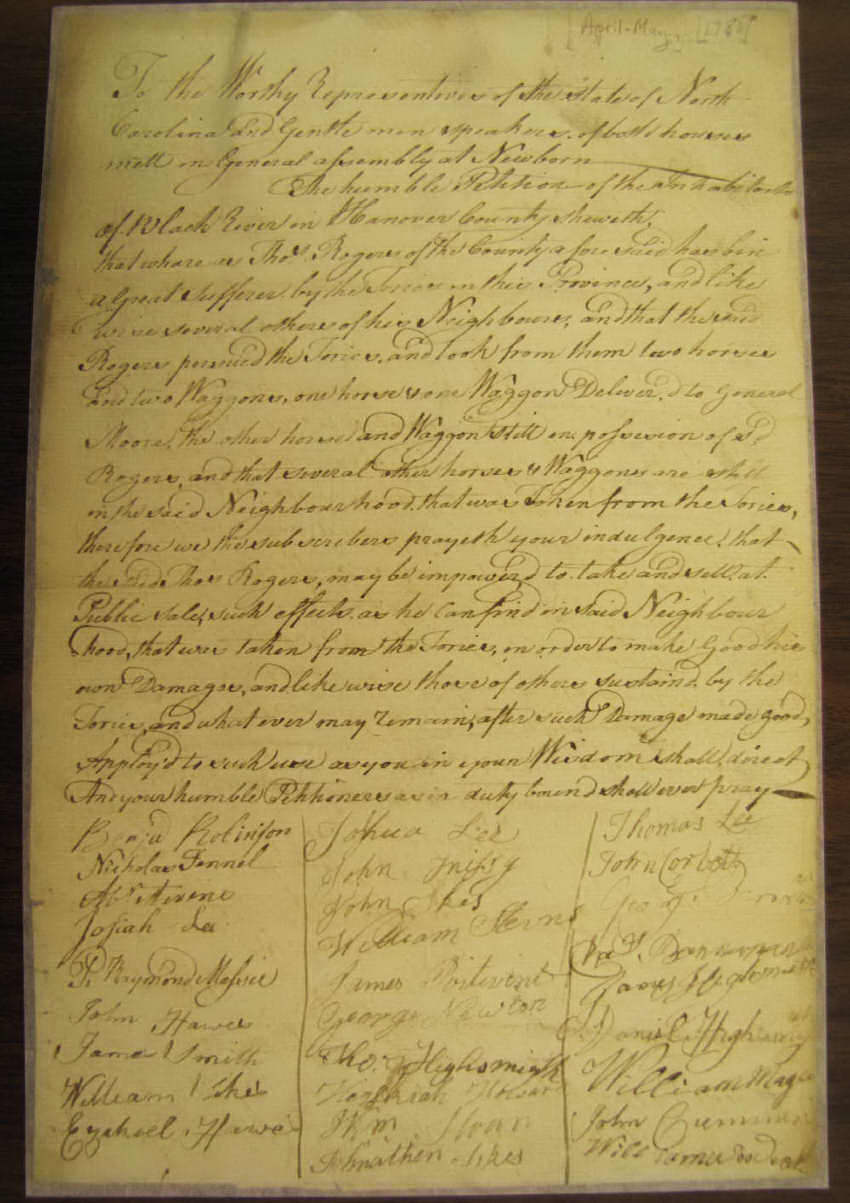 April-May [1780]
To the Worthy Representives of the state of North
Carolina And Gentle men speakers of both houses
mett in General assembly at Newborn
The humble Petition of the Inhabitants
of Black River in Hanover County sheweth,
that whare as Thos. Rogers of the County afore said has bin
a Great sufferer by the Tories in this Province, and like
wise several others of his Neighbours, and that the said
Rogers persued the Tories, and took from them two horses
and two Waggons, one horse & one Waggon Deliver'd to General
Moore, the other horse and Waggon still in possesion of sd
Rogers, and that several other horses & Waggones are still
in the said Neighbourhood that was Taken from the Tories,
therefore we the subscribers prayeth your indulgence that
the sd Thos Rogers, may be impower'd to take and sell at
Public sale, such effects as he can find in said Neighbour
hood, that was taken from the Tories, in order to make Good his
own Damages, and like wise those of others sustaind by the
Tories, and what ever may remain, after such Damage made good,
Apploy'd to such use as you in your Wisdom shall direct
And your humble Petitioners as in duty bound shall ever pray
Robinson
Nicholas Fennel
Josiah Lee
Raymond
John Hawes
James Smith
William Ikes
Ezekiel Hawes
Joshua Lee
John
John Ikes
William
James Poitevint
George Newton
Thos. Highsmith
Hezekiah
Wm Sloan
Johnathen Ikes
Thomas Lee
John Corbett
James Highsmith
Daniel Highsmith
William
John
Will